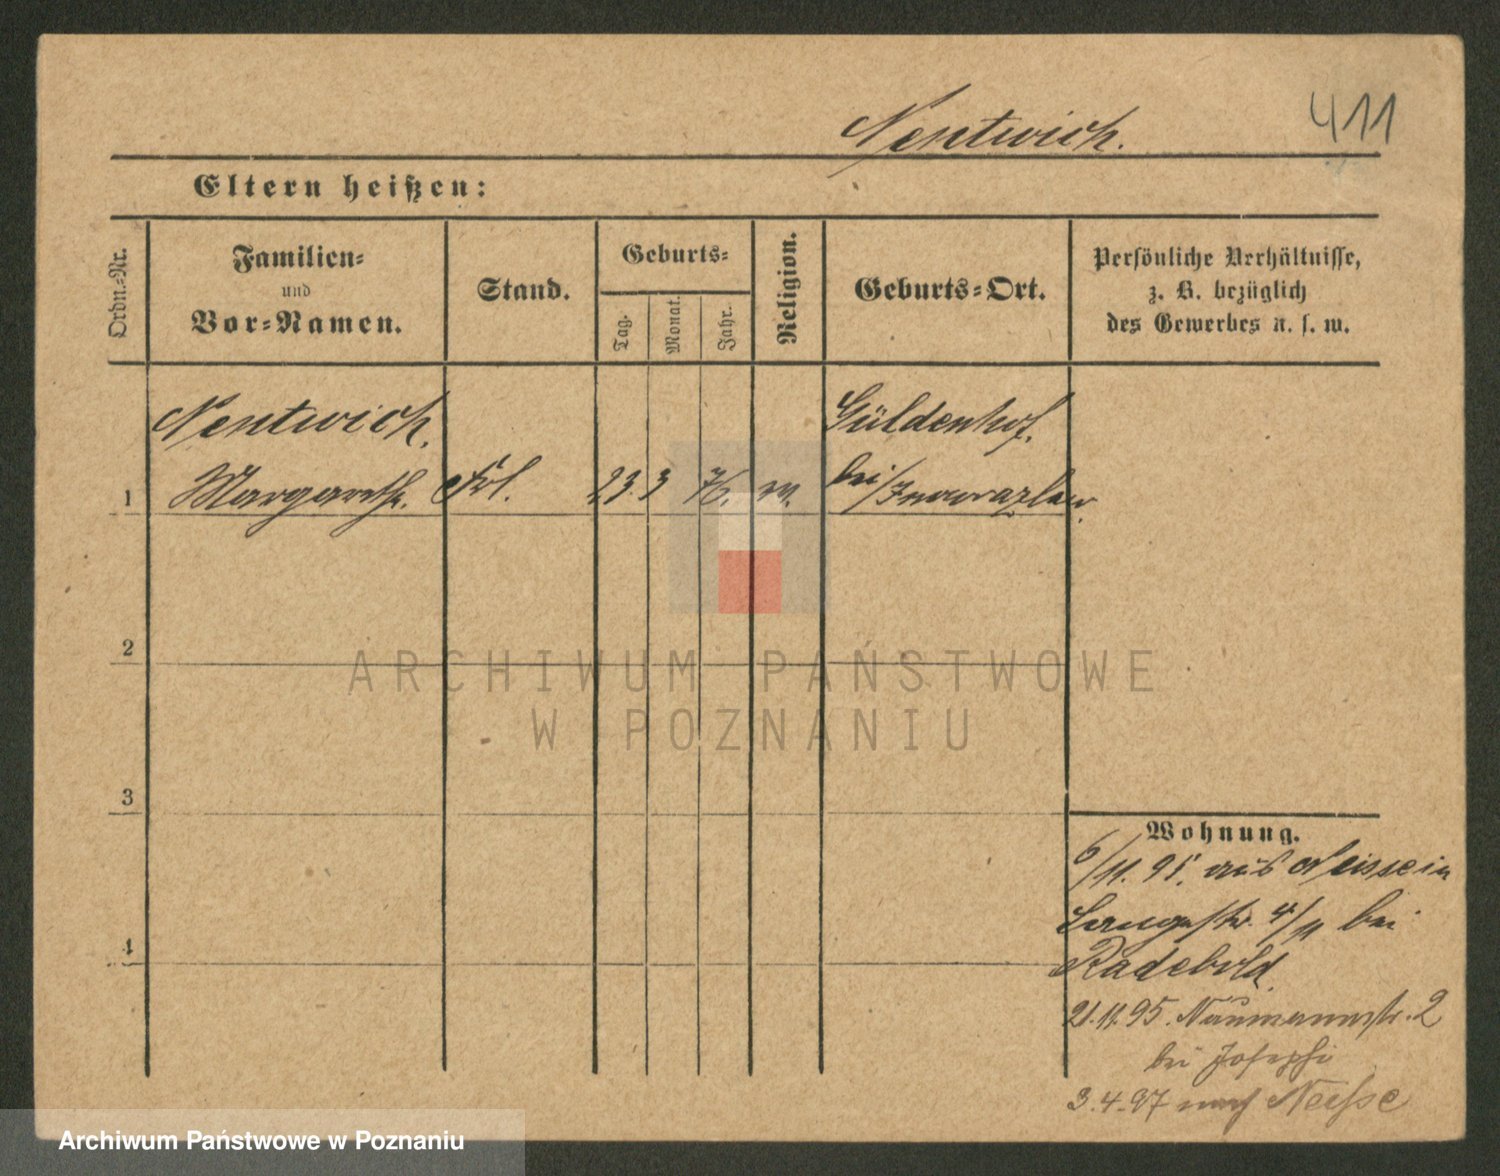 Nentwich.
411
Eltern heißen:
Ordn.-Nr.
Familien-
und
Vor-Namen.
Stand.
Geburts-
Tag.
Monat.
Jahr.
Religion.
Geburts-Ort.
Persönliche Verhältnisse,
z. B. bezüglich
des Gewerbes u. s. w.
Nentwich,
Güldenhof.
1 Margarethe. Frl. 23 3 76.
bei/Inowrazlaw.
2
3
4
Wohnung.
6/11. 95. aus Neisse in
Langestr. 4/11 bei
Radebold.
21.11.95. Naumannstr. 2
bei Josephi
3.4.97 nach Neisse
ARCHIWUM PAŃSTWOWE
W POZNANIU
Archiwum Państwowe w Poznaniu